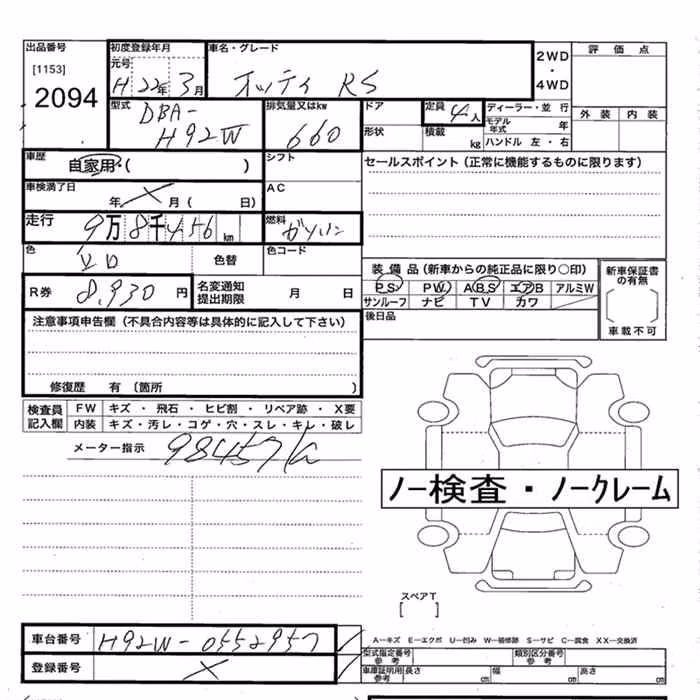 出品番号 初度登録年月 車名・グレード 2WD ・ 4WD 評価点
[1153] 元号 H 22年 3月 オッティ RS
2094
型式 DBA- H92W 排気量又はkw 660 ドア 定員 4人 ディーラー・並 行 外装 内装
モデル年式 年
形状 積載 kg ハンドル 左・右
車歴 自家用・( ) シフト セールスポイント(正常に機能するものに限ります)
車検満了日 年 月( 日) AC
走行 9万8千456km 燃料 ガソリン
色 色替 色コード
装備品(新車からの純正品に限り〇印) 新車保証書の有無
R券 8,930円 名変通知提出期限 月 日 PS PW ABS エアB アルミW
サンルーフ ナビ TV カワ 車載不可
注意事項申告欄(不具合内容等は具体的に記入して下さい) 後日品
修復歴 有 (箇所 )
検査員記入欄 FW キズ ・ 飛石 ・ ヒビ割 ・ リペア跡 ・ X要
内装 キズ・汚レ・コゲ・穴・スレ・キレ・破レ
メーター指示 98457k
ノー検査・ノークレーム
スペアT
[ ]
車台番号 H92W-0552957 A―キズ E―エクボ U―凹み W―補修跡 S―サビ C―腐食 XX―交換済
型式指定番号 参考 類別区分番号 参考
登録番号 X 車庫証明用 参考 長さ cm 幅 cm 高さ cm